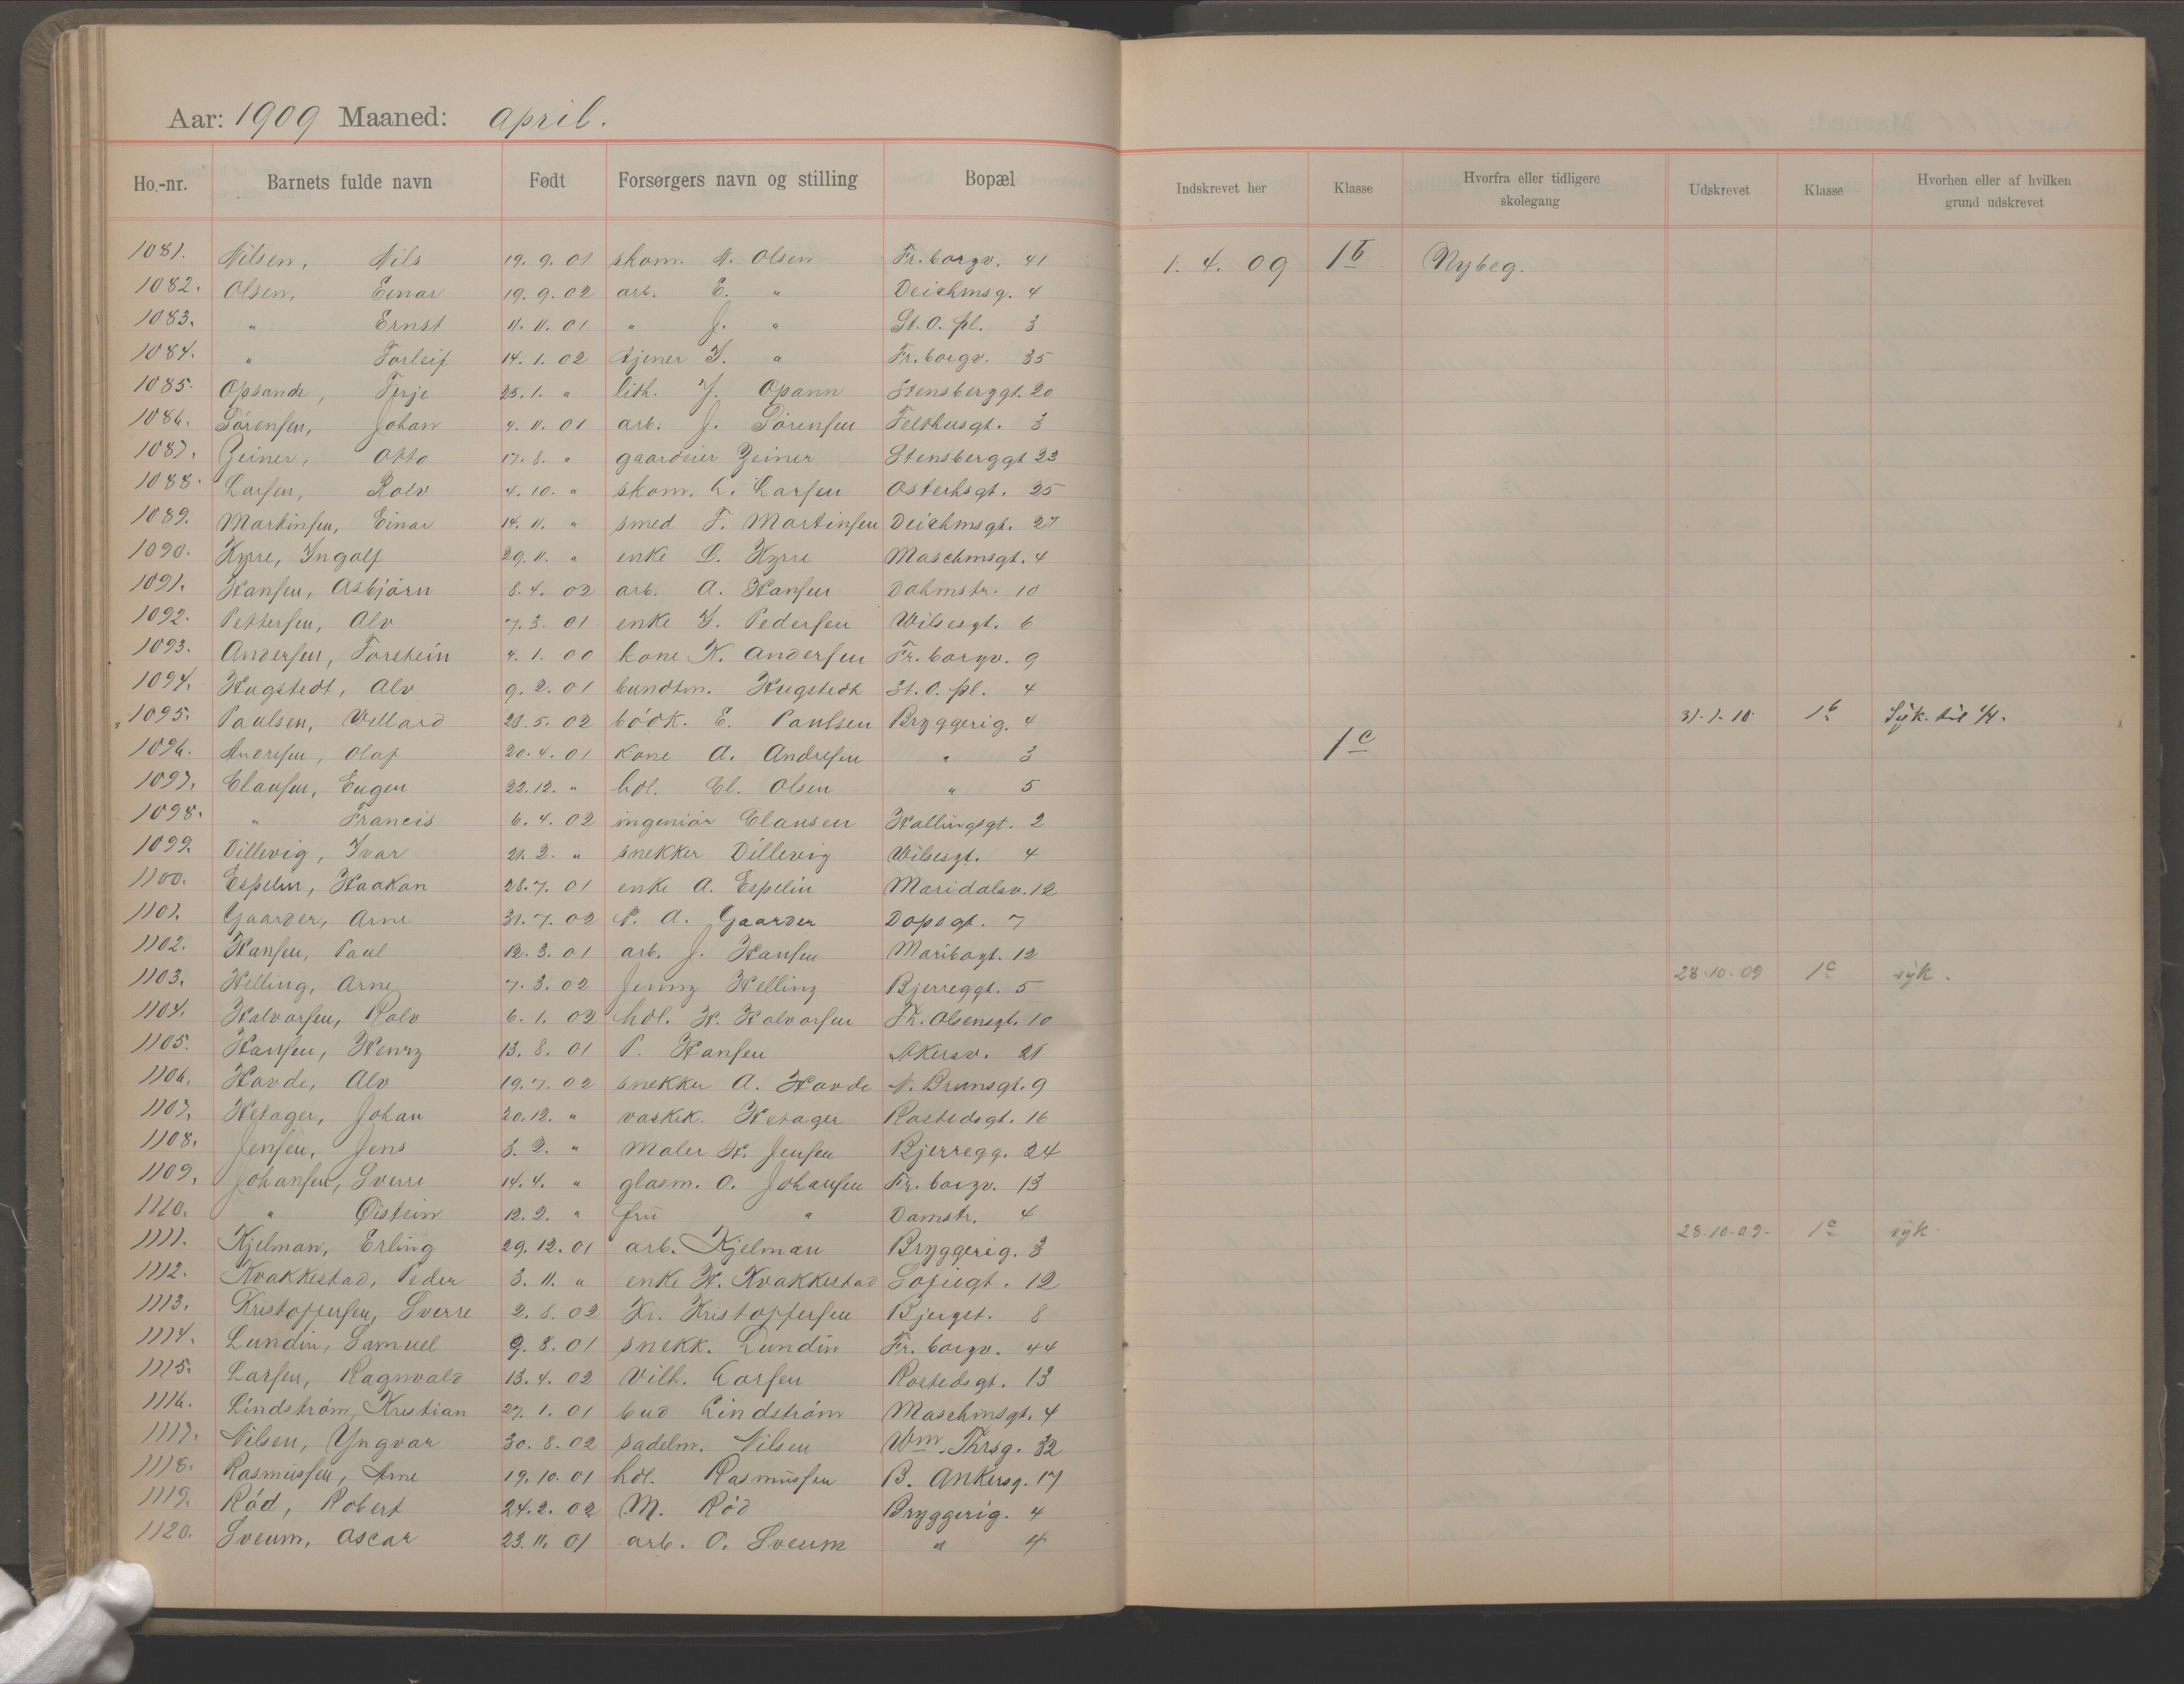 Aar: 1909 Maaned: april.
Ho.-nr. Barnets fulde navn Født Forsørgers navn og stilling Bopæl Indskrevet her Klasse Hvorfra eller tidligere skolegang Udskrevet Klasse Hvorhen eller af hvilken grund udskrevet
1081. Nilsen, Nils 19. 9. 01 skom. N. Olsen Fr. borgv. 41 1. 4. 09 1b Nybeg.
1082. Olsen, Einar 19. 9. 02 arb. E. " Deichmsg. 4
1083. " Ernst 11. 11. 01 " J. " St. O. pl. 3
1084. " Torleif 14. 1. 02 tjener T. " Fr. borgv. 35
1085. Terje 25. 1. " lith. J. Opann Stensberggt. 20
1086. Sørensen, Johan 4. 11. 01 arb. J. Sørensen Telthusgt. 3
1087. Zeiner, Otto 17. 8. " gaardeier Zeiner Stensberggt 23
1088. Larsen, Rolv 4. 10. " skom. L. Larsen Osterhsgt. 25
1089. Martinsen, Einar 14. 11. " smed T. Martinsen Deichmsgt. 27
1090. Kyrre, Ingolf 29. 11. " enke L. Kyrre Maschmsgt. 4
1091. Hansen, Asbjørn 8. 4. 02 arb. A. Hansen Dahmstr. 10
1092. Pettersen, Alv 7. 3. 01 enke I. Pedersen Wilsesgt. 6
1093. Andersen, Torstein 4. 1. 00 kone K. Andersen Fr. borgv. 9
1094. Hugstedt, Alv 9. 2. 01 bundtm. Hugstedt St. O. pl. 4
1095. Paulsen, Villard 23. 5. 02 bødk. E. Paulsen Bryggerig. 4 31. 1. 10 1b Syk. til 1/4.
1096. Andresen, Olaf 20. 4. 01 kone A. Andresen " 3 1c
1097. Clausen, Eugen 22. 12. " hdl. Cl. Olsen " 5
1098. " Francis 6. 4. 02 ingeniør Clausen Hallingsgt. 2
1099. Dillevig, Ivar 21. 2. " snekker Dillevig Wilsesgt. 4
1100. Espelin, Haakon 28. 7. 01 enke A. Espelin Maridalsv. 12
1101. Gaarder, Arne 31. 7. 02 P. A. Gaarder Dopsgt. 7
1102. Hansen, Paul 12. 3. 01 arb. J. Hansen Maribogt. 12
1103. Helling, Arne 7. 3. 02 Jenny Helling Bjerreggt. 5 28. 10. 09 1c syk.
1104. Halvorsen, Rolv 6. 1. 02 hdl. H. Halvorsen Th. Olsensgt. 10
1105. Hansen, Henry 13. 8. 01 P. Hansen Akersv. 21
1106. Havde, Alv 19. 7. 02 snekker A. Havde N. Brunsgt. 9
1107. Hetager, Johan 20. 12. " vaskek. Hetager Rostedsgt. 16
1108. Jensen, Jens 3. 2. " Maler H. Jensen Bjerregg. 24
1109. Johansen, Sverre 14. 4. " glasm. O. Johansen Fr. borgv. 13
1110. " Øistein 12. 2. " fru " Damstr. 4
1111. Kjelman, Erling 29. 12. 01 arb. Kjelman Bryggerig. 3 28. 10. 09. 1c syk.
1112. Kvakkestad, Peder 3. 11. " enke H. Kvakkestad Sofiegt. 12
1113. Kristoffersen, Sverre 2. 8. 02 Kr. Kristoffersen Bjergst. 8
1114. Lundin, Samuel 9. 8. 01 snekk. Lundin Fr. borgv. 44
1115. Larsen, Ragnvald 13. 4. 02 Vilh. Larsen Rostedsgt. 13
1116. Lindstrøm, Kristian 27. 1. 01 bud Lindstrøm Maschmsgt. 4
1117. Nilsen, Yngvar 30. 8. 02 sadelm. Nilsen Wm. Thrsg. 32
1118. Rasmussen, Arne 19. 10. 01 hdl. Rasmussen B. Ankersg. 17
1119. Rød, Robert 24. 2. 02 M. Rød Bryggerig. 4
1120. Sveum, Oscar 23. 11. 01 arb. O. Sveum " 4